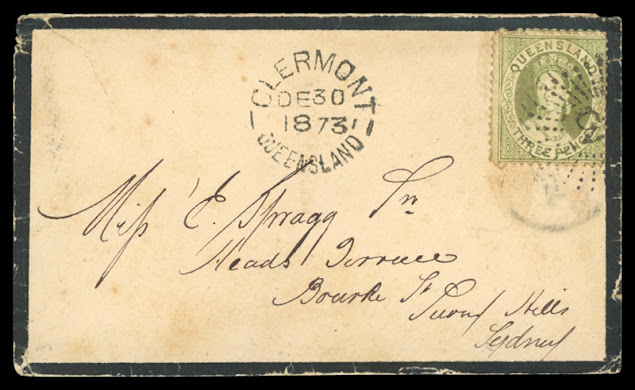 CLERMONT
DE 30
1873
QUEENSLAND
QUEENSLAND
THREE PENCE
Miss E. Spragg Sn
Heads Terrace
Bourke St Surry Hills
Sydney